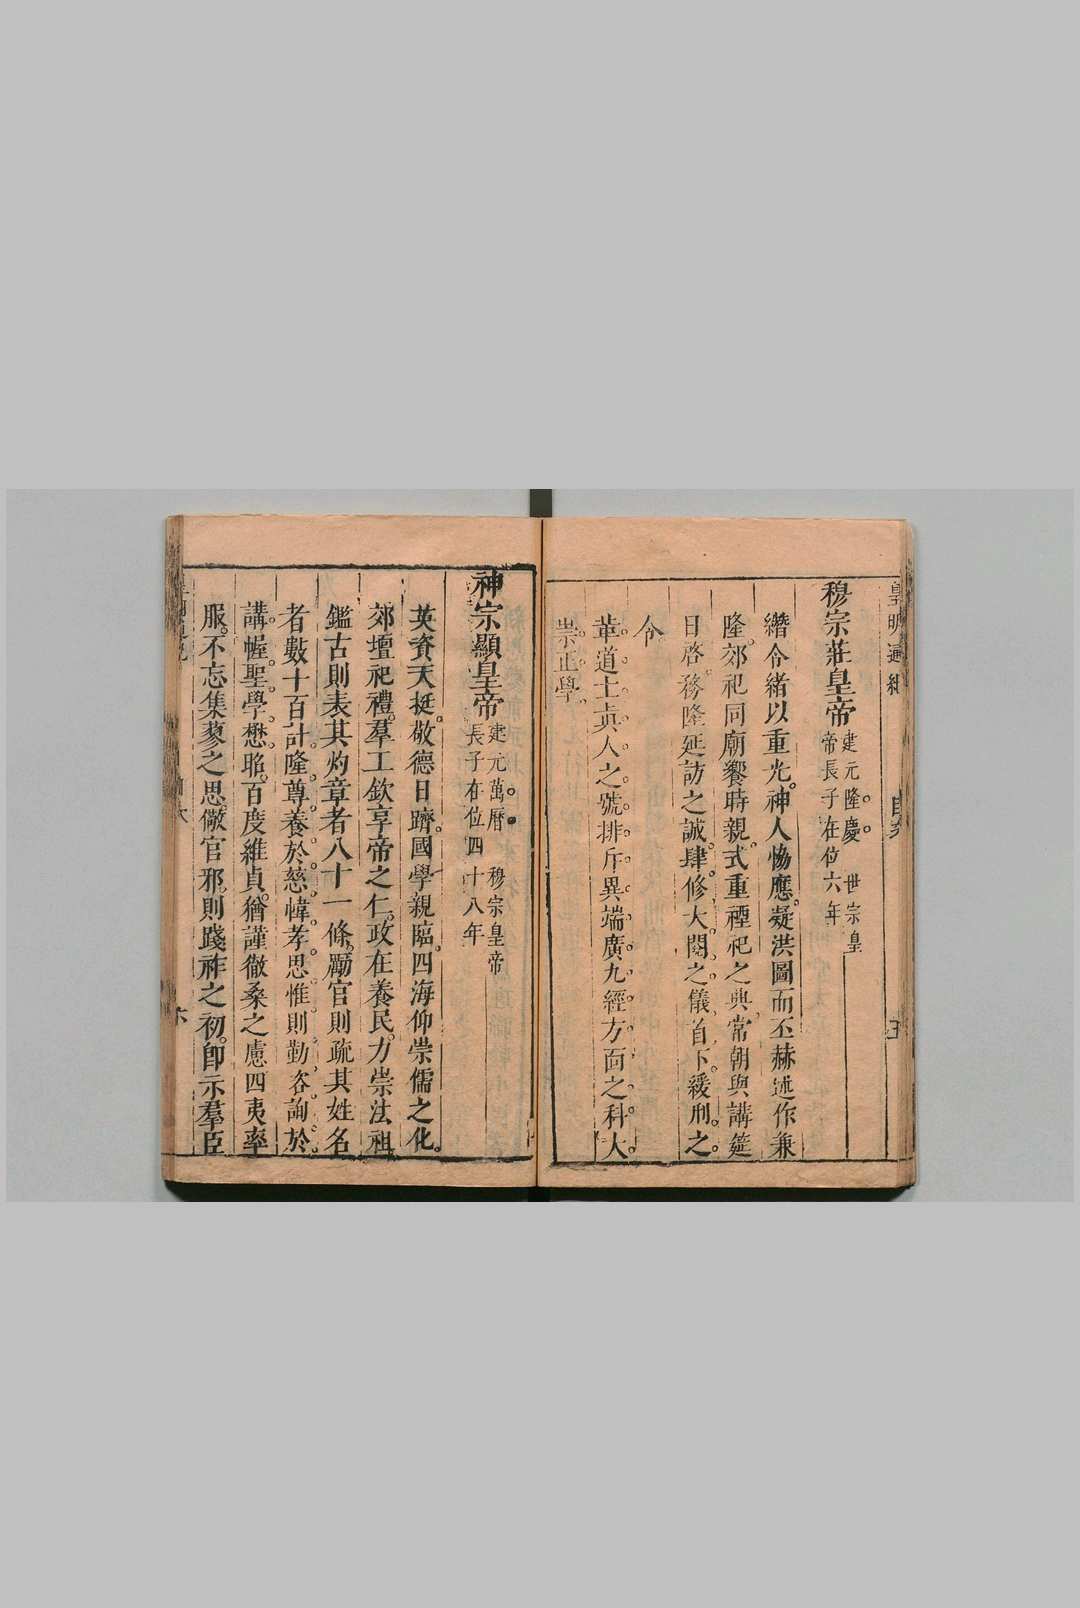 皇明通紀
穆宗莊皇帝
建元隆慶。世宗皇
帝長子在位六年
纘令緒以重光。神人恊應。凝洪圖而丕赫述作兼
隆。郊祀同廟饗時親。式重禋祀之典常朝與講筵
日啓。務隆延訪之誠。肆修大閱之儀首下緩刑之
令
革道士真人之號排斥異端廣九經方面之科大
崇正學
神宗顯皇帝
建元萬曆。穆宗皇帝
長子在位四十八年
英資天挺。敬德日躋。國學親臨。四海仰崇儒之化。
郊壇祀禮。羣工欽享帝之仁。政在養民。力崇法祖
鑑古則表其灼章者八十一條。勵官則疏其姓名
者數十百計隆尊養於慈幃。孝思惟則勤咨詢於
講幄。聖學懋昭。百度維貞。猶謹徹桑之慮四夷率
服。不忘集蓼之思。儆官邪。則踐祚之初。卽示羣臣
六